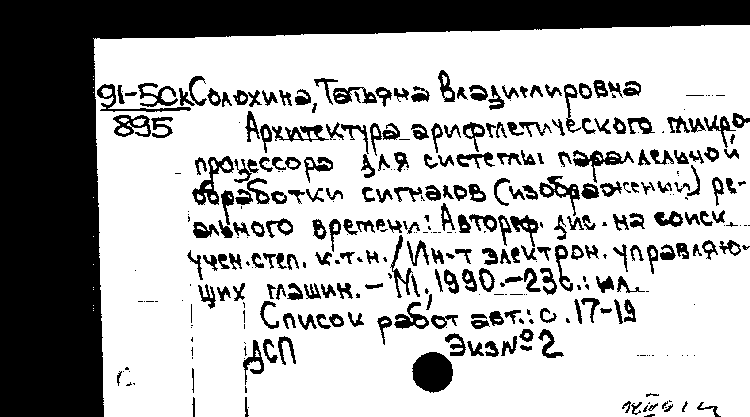 91-50к Солохина, Татьяна Владимировна
895 Архитектура арифметического микро-
процессора для системы параллельной
обработки сигналов (изображений) ре-
ального времени: Автореф. дис. на соиск.
учен. степ. к.т.н. / Ин-т электрон. управляю-
щих машин. - М., 1990. - 23с.: ил.
Список работ авт.: с. 17-19
ДСП Экз № 2